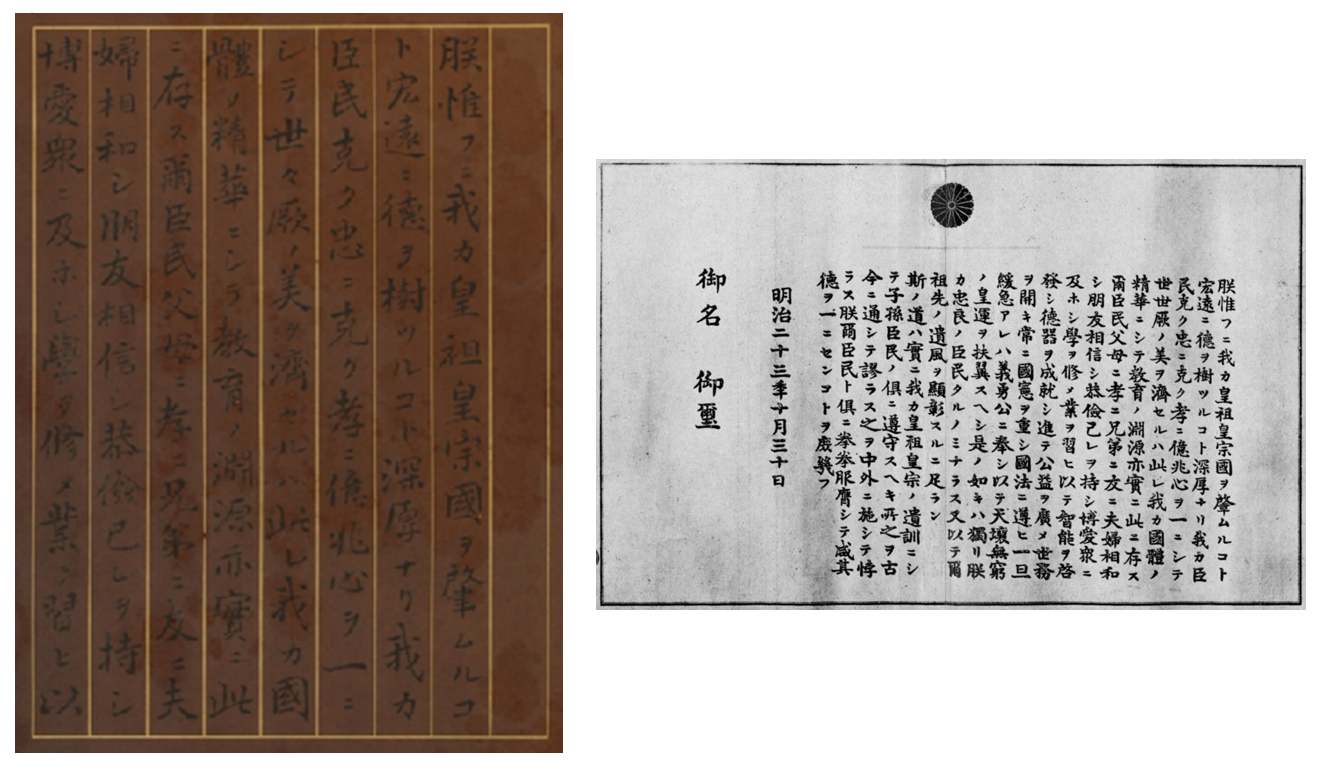 朕惟フニ我カ皇祖皇宗國ヲ肇ムルコ
ト宏遠ニ德ヲ樹ツルコト深厚ナリ我カ
臣民克ク忠ニ克ク孝ニ億兆心ヲ一ニ
シテ世々厥ノ美ヲ濟セルハ此レ我カ國
體ノ精華ニシテ教育ノ淵源亦實ニ此
ニ存ス爾臣民父母ニ孝ニ兄弟ニ友ニ夫
婦相和シ朋友相信シ恭儉己レヲ持シ
博愛衆ニ及ホシ學ヲ修メ業ヲ習ヒ以
朕惟フニ我カ皇祖皇宗國ヲ肇ムルコト
宏遠ニ德ヲ樹ツルコト深厚ナリ我カ臣
民克ク忠ニ克ク孝ニ億兆心ヲ一ニシテ
世世厥ノ美ヲ濟セルハ此レ我カ國體ノ
精華ニシテ敎育ノ淵源亦實ニ此ニ存ス
爾臣民父母ニ孝ニ兄弟ニ友ニ夫婦相和
シ朋友相信シ恭儉己レヲ持シ博愛衆ニ
及ホシ學ヲ修メ業ヲ習ヒ以テ智能ヲ啓
發シ德器ヲ成就シ進テ公益ヲ廣メ世務
ヲ開キ常ニ國憲ヲ重シ國法ニ遵ヒ一旦
緩急アレハ義勇公ニ奉シ以テ天壤無窮
ノ皇運ヲ扶翼スヘシ是ノ如キハ獨リ朕
カ忠良ノ臣民タルノミナラス又以テ爾
祖先ノ遺風ヲ顯彰スルニ足ラン
斯ノ道ハ實ニ我カ皇祖皇宗ノ遺訓ニシ
テ子孫臣民ノ俱ニ遵守スヘキ所之ヲ古
今ニ通シテ謬ラス之ヲ中外ニ施シテ悖
ラス朕爾臣民ト俱ニ拳拳服膺シテ咸其
德ヲ一ニセンコトヲ庶幾フ
明治二十三年十月三十日
御名 御璽